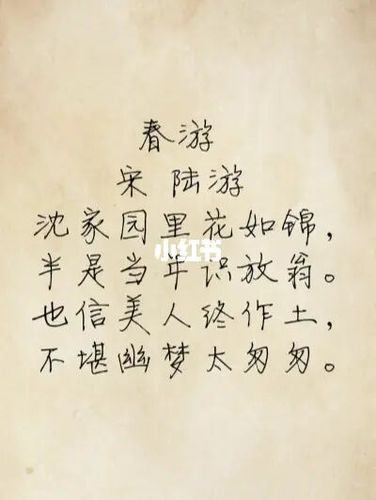 春游
宋 陆游
沈家园里花如锦，
半是当年识放翁。
小红书
也信美人终作土，
不堪幽梦太匆匆。